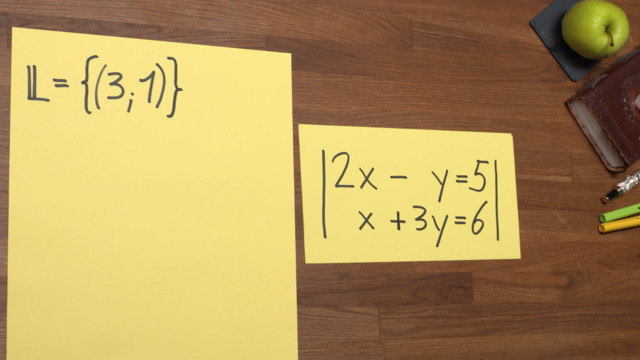 𝕃 = {(3;1)}
|2x - y = 5|
|x + 3y = 6|